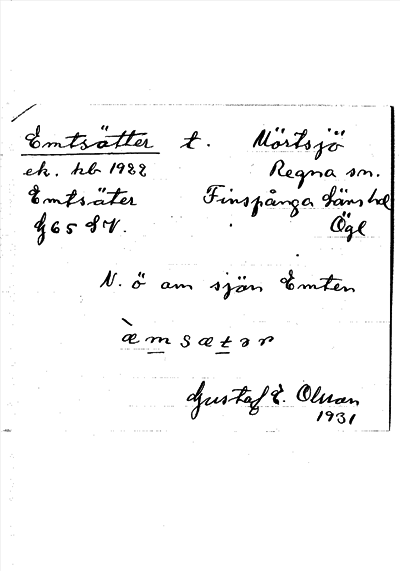 Emtsätter t. Mörtsjö
ek. kb 1922 Regna sn.
Emtsäter Finspånga läns hd
G65 SV. Ögl
N. ö om sjön Emten
æ̀msætər
Gustaf E. Olsson
1931